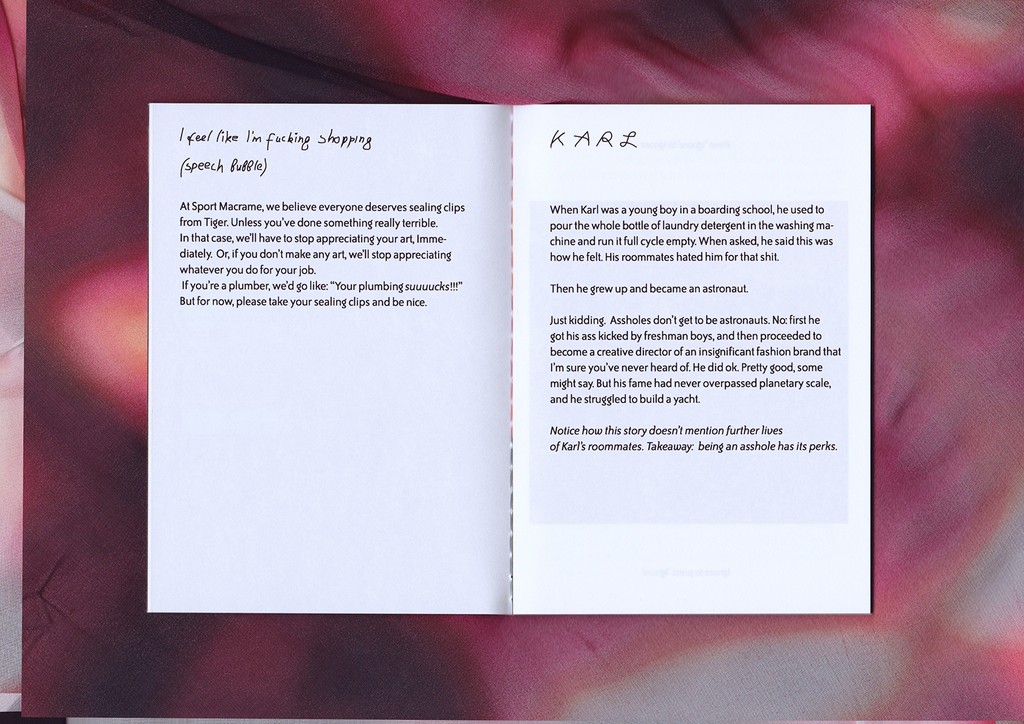 I feel like I'm fucking shopping
(speech bubble)
At Sport Macrame, we believe everyone deserves sealing clips
from Tiger. Unless you've done something really terrible.
In that case, we'll have to stop appreciating your art, Imme-
diately. Or, if you don't make any art, we'll stop appreciating
whatever you do for your job.
If you're a plumber, we'd go like: “Your plumbing suuuucks!!!”
But for now, please take your sealing clips and be nice.
KARL
When Karl was a young boy in a boarding school, he used to
pour the whole bottle of laundry detergent in the washing ma-
chine and run it full cycle empty. When asked, he said this was
how he felt. His roommates hated him for that shit.
Then he grew up and became an astronaut.
Just kidding. Assholes don't get to be astronauts. No: first he
got his ass kicked by freshman boys, and then proceeded to
become a creative director of an insignificant fashion brand that
I'm sure you've never heard of. He did ok. Pretty good, some
might say. But his fame had never overpassed planetary scale,
and he struggled to build a yacht.
Notice how this story doesn't mention further lives
of Karl's roommates. Takeaway: being an asshole has its perks.